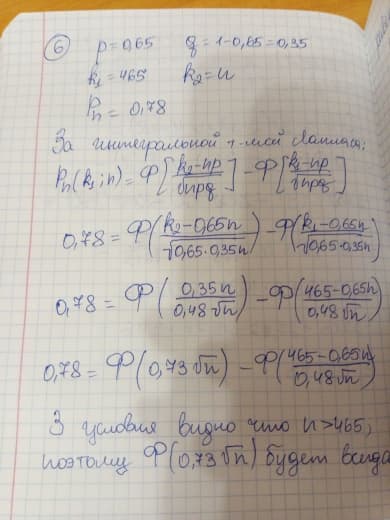 6 p=0,65 q=1-0,65=0,35
k₁=465 k₂=n
Pₙ=0,78
За интегральной т-мой Лапласа:
Pₙ(k₁;n)=Ф[(k₂-np)/√npq]-Ф[(k₁-np)/√npq]
0,78=Ф((k₂-0,65n)/√0,65·0,35n)-Ф((k₁-0,65n)/√0,65·0,35n)
0,78=Ф(0,35n/0,48√n)-Ф((465-0,65n)/0,48√n)
0,78=Ф(0,73√n)-Ф((465-0,65n)/0,48√n)
З условия видно что n>465,
поэтому Ф(0,73√n) будет всегда